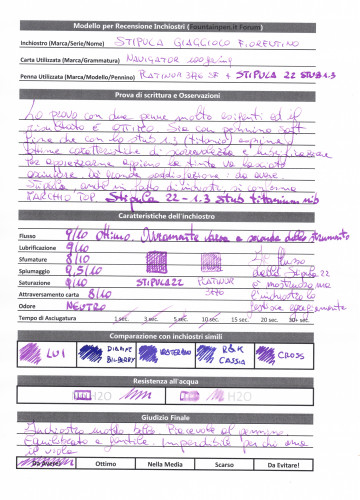 Modello per Recensione Inchiostri (Fountainpen.it Forum)
Inchiostro (Marca/Serie/Nome) STIPULA GIAGGIOLO FIORENTINO
Carta Utilizzata (Marca/Grammatura) NAVIGATOR
Penna Utilizzata (Marca/Modello/Pennino) PLATINUM 3776 SF + STIPULA 22 STUB 1.3
Prova di scrittura e Osservazioni
Lo provo con due penne molto esigenti ed il
risultato è ottimo. Sia con pennino soft
fine che con lo stub 1.3 (titanio) esprime
ottime caratteristiche di scorrevolezza e lubrificazione
Per apprezzarne appieno la tinta va lasciato
asciugare. Da grande soddisfazione: da avere.
Stipula, anche in fatto di inchiostri, si conferma
MARCHIO TOP. Stipula 22 - 1.3 stub titanium nib
Caratteristiche dell'inchiostro
Flusso 9/10 Ottimo. Ovviamente varia a seconda dello strumento
Lubrificazione 9/10
Sfumature 8/10 Il flusso
Spiumaggio 9,5/10 della Stipula 22
Saturazione 9/10 STIPULA 22 PLATINUM 3776 è mostruoso ma
Attraversamento carta 8/10 l'inchiostro lo
Odore NEUTRO gestisce egregiamente
Tempo di Asciugatura 1 sec. 3 sec. 5 sec. 10 sec. 15 sec. 20 sec. 30+ sec.
Comparazione con inchiostri simili
LUI DIAMINE BILBERRY WATERMAN R&K CASSIA CROSS
Resistenza all'acqua
H2O H2O
Giudizio Finale
Inchiostro molto bello. Piacevole al pennino.
Equilibrato e gentile. Imperdibile per chi ama
il viola
Da Avere! Ottimo Nella Media Scarso Da Evitare!